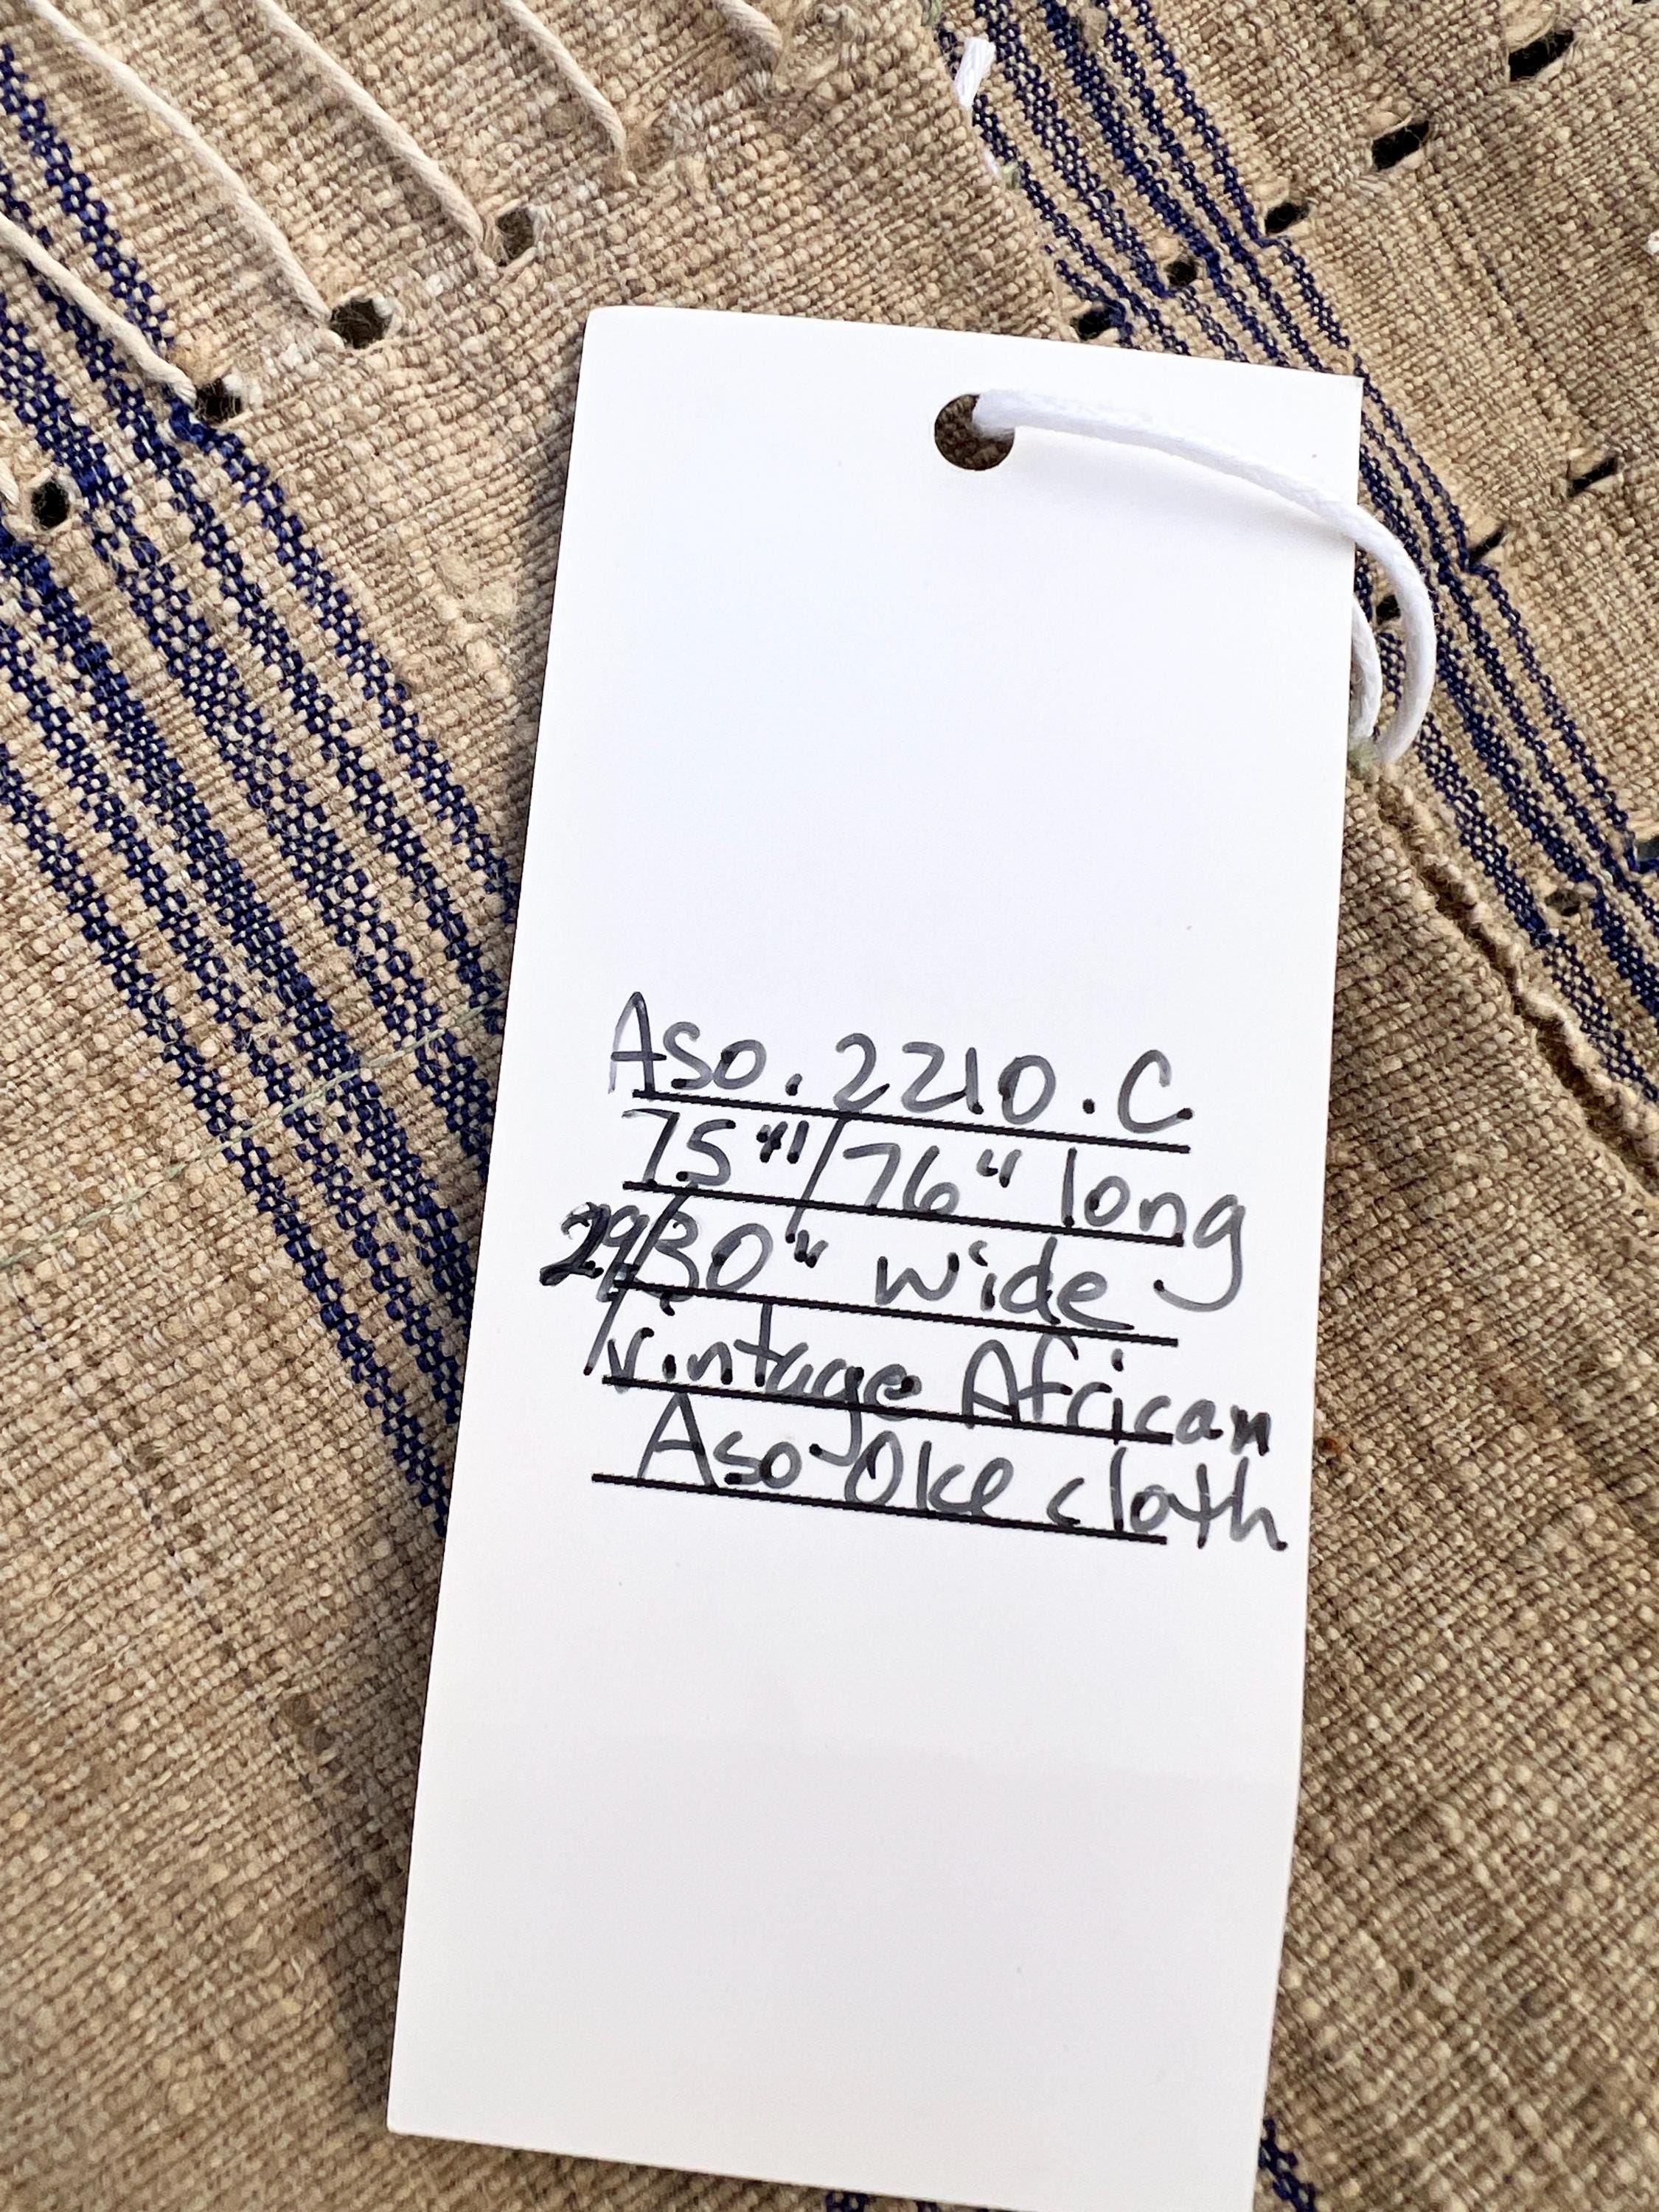 Aso.2210.C
75"/76" long
29/30" wide
Vintage African
Aso-Oke cloth